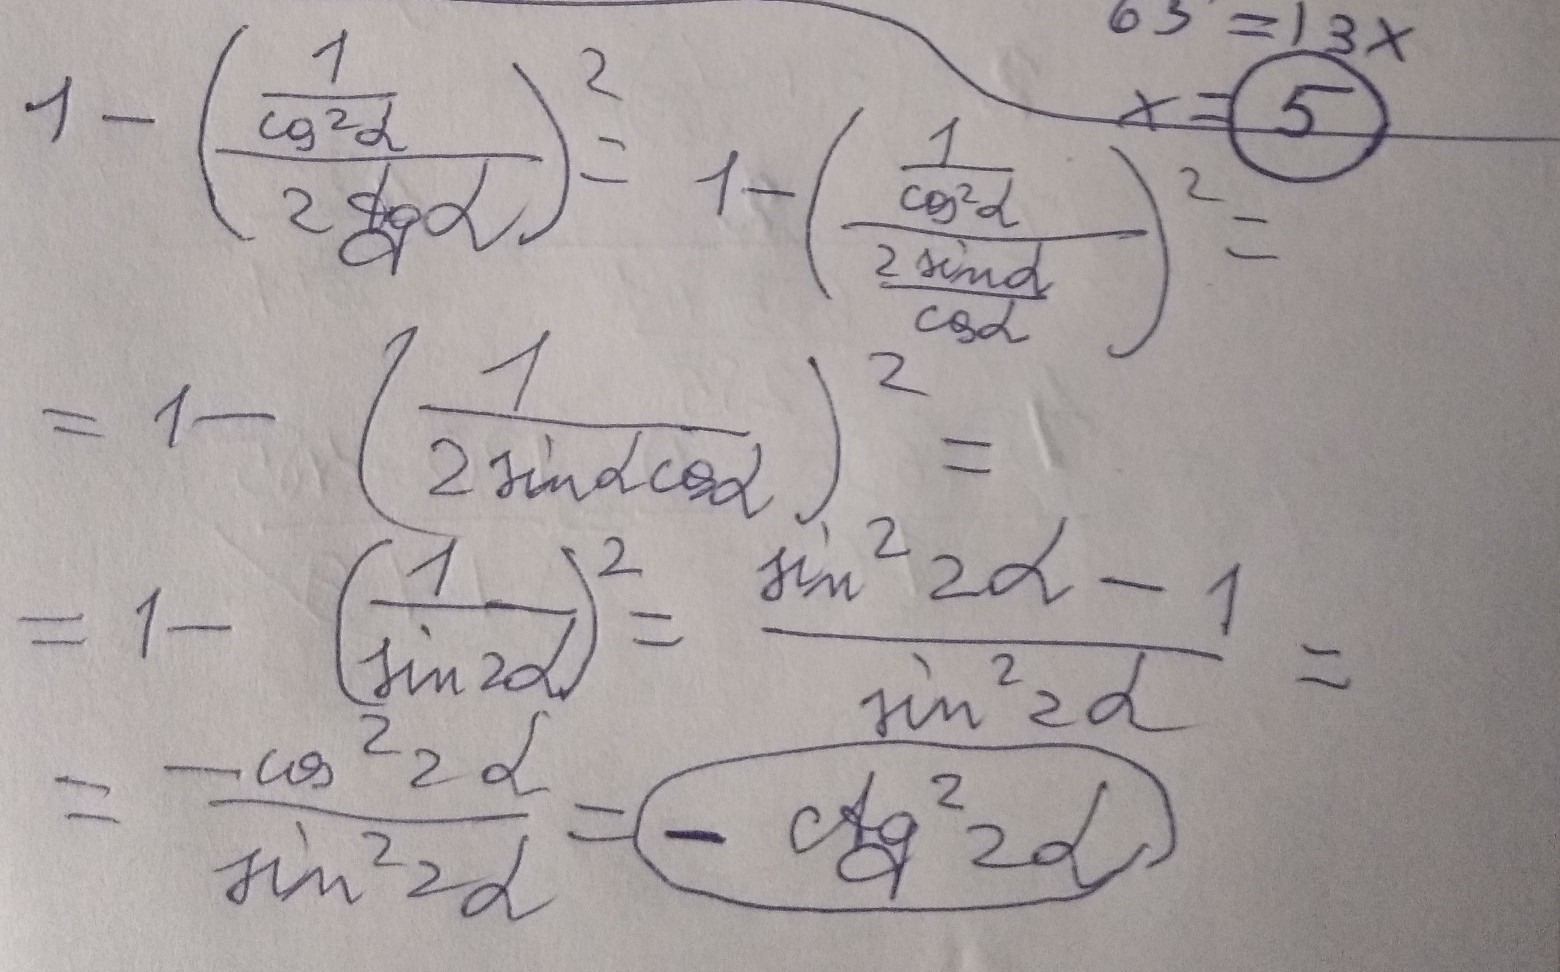 65 = 13x
x = 5
1 - ((1/cos²α)/(2tgα))² = 1 - ((1/cos²α)/(2sinα/cosα))² =
= 1 - (1/(2sinαcosα))² =
= 1 - (1/sin2α)² = (sin²2α - 1)/(sin²2α) =
= (-cos²2α)/(sin²2α) = - ctg²2α